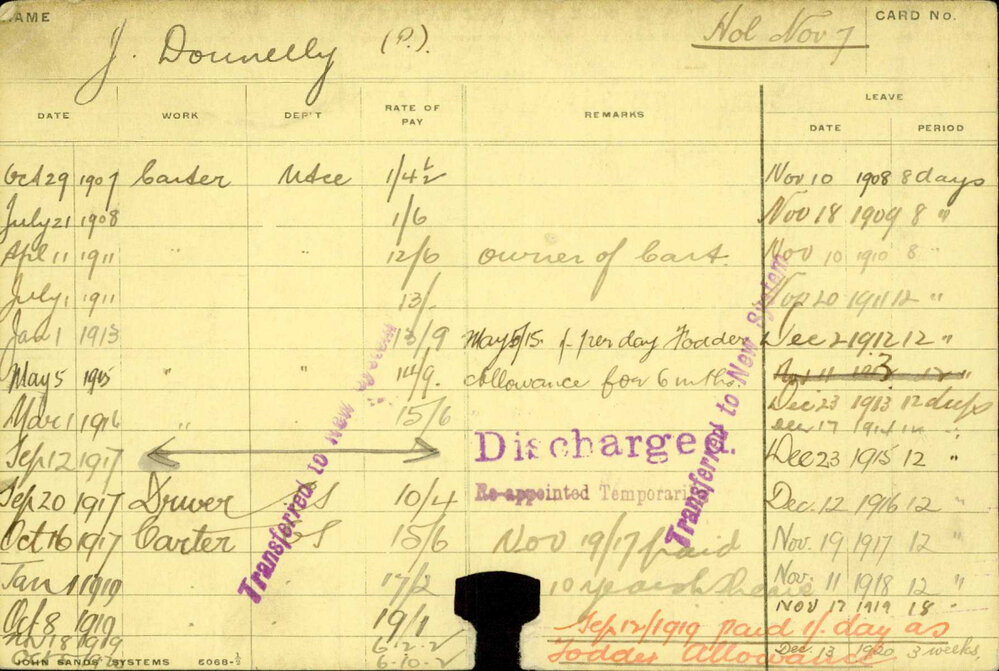 NAME J. Donnelly (P.). Hol Nov 7 CARD No.
DATE WORK DEP'T RATE OF PAY REMARKS LEAVE
DATE PERIOD
Oct 29 1907 Carter Mtce 1/4½ Nov 10 1908 8 days
July 21 1908 1/6 Nov 18 1909 8 "
Apl 11 1911 " " 12/6 owner of Cart. Nov 10 1910 8 "
July 1 1911 13/- 20 1911 12 "
Jan 1 1913 13/9 May 5/15 per day Fodder Dec 2 1912 12 "
May 5 1915 " " 14/9. Allowance for 6 mths.
Dec 23 1913 12 days
Mar 1 1916 " 15/6 Dec 17 1914 12 "
Sep 12 1917 Discharged. Dec 23 1915 12 "
Sep 20 1917 Driver 10/4 Re-appointed Temporari Dec. 12 1916 12 "
Oct 16 1917 Carter 15/6 Nov 19/17 paid Nov. 19 1917 12 "
Jan 1 1919 17/2 10 years Nov. 11 1918 12 "
Nov 17 1919 18 "
Oct 8 1919 19/1 Sep 12/1919 paid 1/. day as
18 1919 6-2-2 Fodder Allowance Dec 13 1920 3 weeks.
6-10-2
Transferred to New System
Transferred to New System
JOHN SANDS SYSTEMS 5068-½